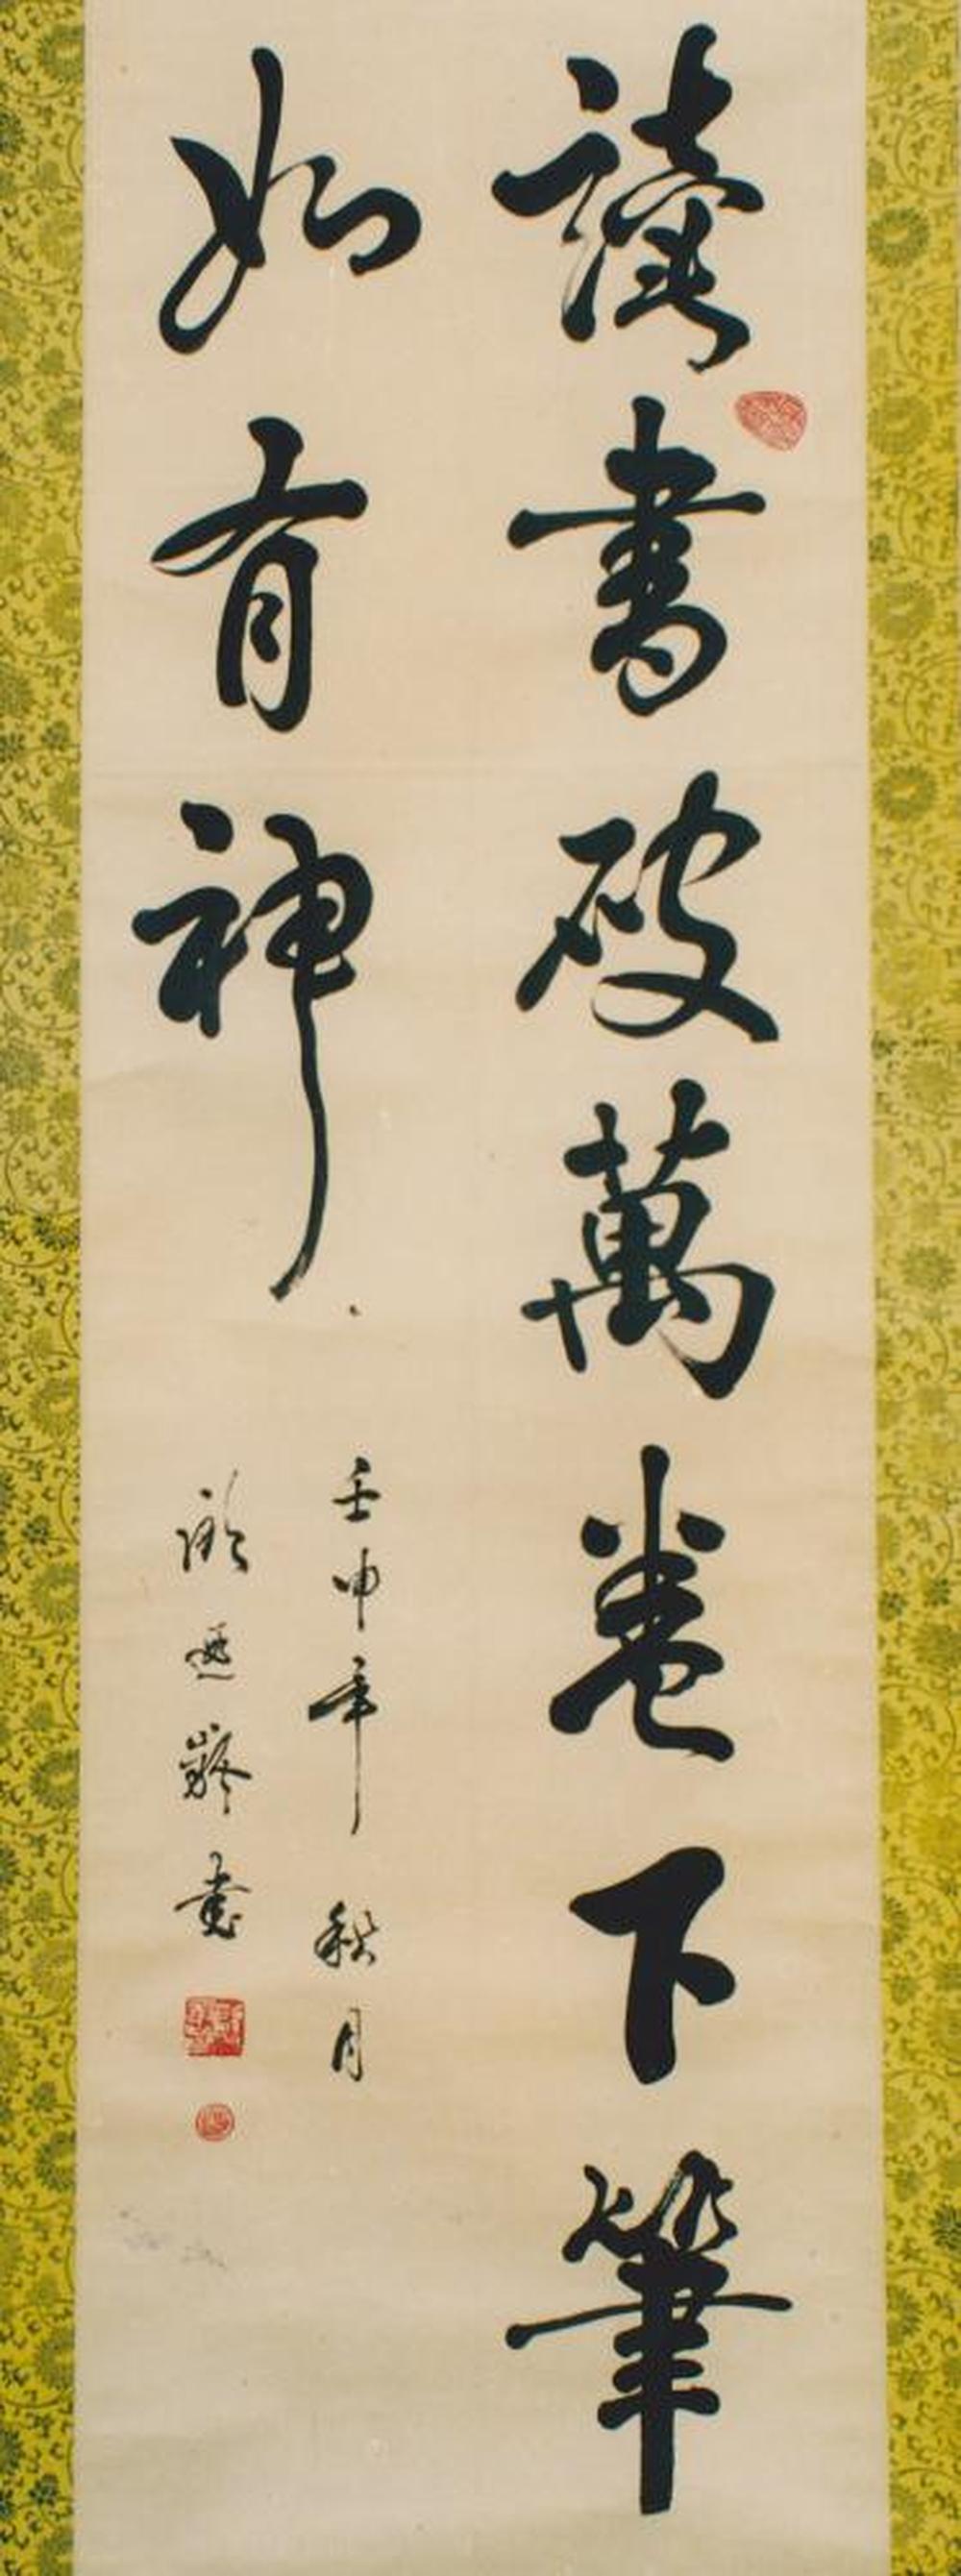 讀書破萬卷下筆
如有神
壬申年秋月
書